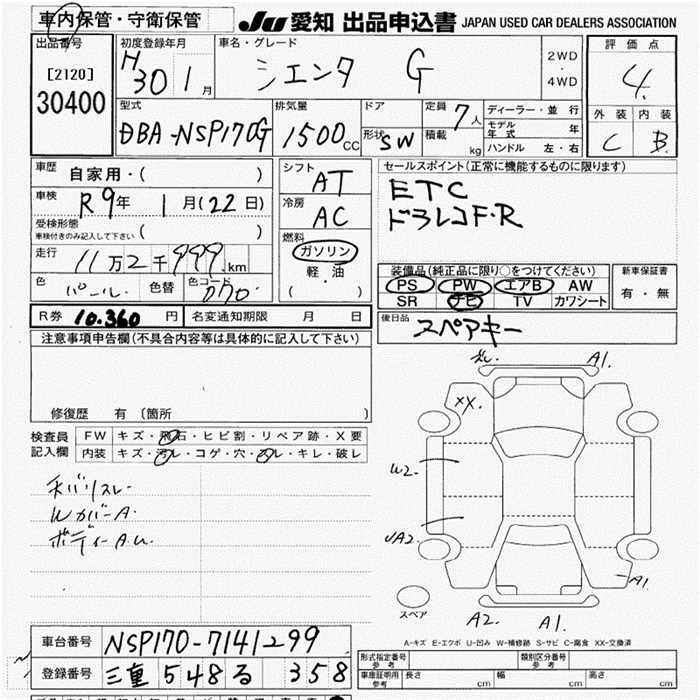 車内保管・守衛保管
JU 愛知 出品申込書 JAPAN USED CAR DEALERS ASSOCIATION
出品番号
[2120]
30400
初度登録年月
H30 1月
車名・グレード
シエンタ G
2WD
・
4WD
評価点
4.
外装 内装
C B
型式
DBA-NSP170G
排気量
1500cc
ドア
形状 SW
定員 7人
積載 kg
ディーラー・並行
モデル年式 年
ハンドル 左・右
車歴 自家用・( )
車検 R9年 1月(22日)
受検形態
車検付きのみ記入して下さい ( )
走行 11万2千999km
色 パール 色替 色コード 070
シフト AT
冷房 AC
燃料
ガソリン
軽油
( ・ )
セールスポイント(正常に機能するものに限ります)
ETC
ドラレコF・R
装備品(純正品に限り○をつけてください)
PS PW エアB AW
SR ナビ TV カワシート
新車保証書
有・無
後日品 スペアキー
R券 10.360円 名変通知期限 月 日
注意事項申告欄(不具合内容等は具体的に記入して下さい)
修復歴 有 〔箇所 〕
検査員記入欄
FW キズ・飛石・ヒビ割・リペア跡・X要
内装 キズ・汚レ・コゲ・穴・スレ・キレ・破レ
Wカバー A.
ボディー A.U.
A1.
XX.
W2-
UA2.
A1
A2. A1.
スペア
A-キズ E-エクボ U-凹み W-補修跡 S-サビ C-腐食 XX-交換済
車台番号 NSP170-7141299
登録番号 三重 548 る 358
形式指定番号 参考
類別区分番号 参考
車庫証明用 参考 長さ cm 幅 cm 高さ cm